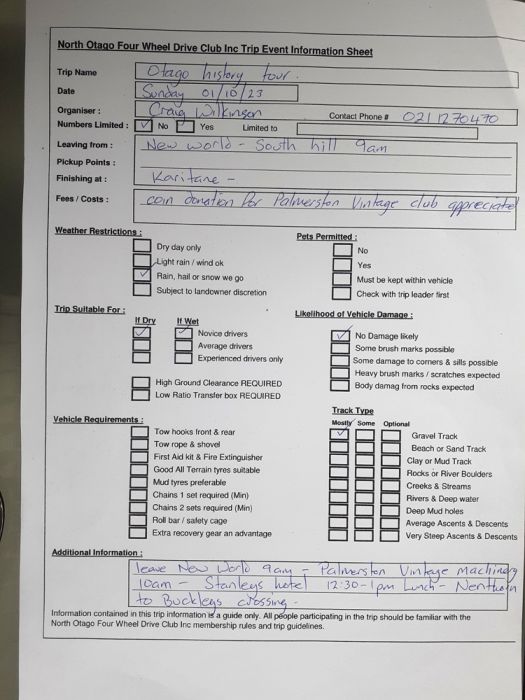 North Otago Four Wheel Drive Club Inc Trip Event Information Sheet
Trip Name Otago history tour.
Date Sunday 01/10/23
Organiser : Craig Wilkinson Contact Phone # 021 1270470
Numbers Limited : No Yes Limited to
Leaving from : New world - South hill 9am
Pickup Points :
Finishing at : Karitane -
Fees / Costs : coin donation for Palmerston Vintage club appreciated
Weather Restrictions :
Dry day only
Light rain / wind ok
Rain, hail or snow we go
Subject to landowner discretion
Pets Permitted :
No
Yes
Must be kept within vehicle
Check with trip leader first
Trip Suitable For :
If Dry If Wet
Novice drivers
Average drivers
Experienced drivers only
High Ground Clearance REQUIRED
Low Ratio Transfer box REQUIRED
Likelihood of Vehicle Damage :
No Damage likely
Some brush marks possible
Some damage to corners & sills possible
Heavy brush marks / scratches expected
Body damag from rocks expected
Vehicle Requirements :
Tow hooks front & rear
Tow rope & shovel
First Aid kit & Fire Extinguisher
Good All Terrain tyres suitable
Mud tyres preferable
Chains 1 set required (Min)
Chains 2 sets required (Min)
Roll bar / safety cage
Extra recovery gear an advantage
Track Type
Mostly Some Optional
Gravel Track
Beach or Sand Track
Clay or Mud Track
Rocks or River Boulders
Creeks & Streams
Rivers & Deep water
Deep Mud holes
Average Ascents & Descents
Very Steep Ascents & Descents
Additional Information :
leave New World 9am - Palmerston Vintage machinery
10am - Stanleys hotel 12.30-1pm Lunch -
to Buckleys crossing -
Information contained in this trip information is a guide only. All people participating in the trip should be familiar with the
North Otago Four Wheel Drive Club Inc membership rules and trip guidelines.